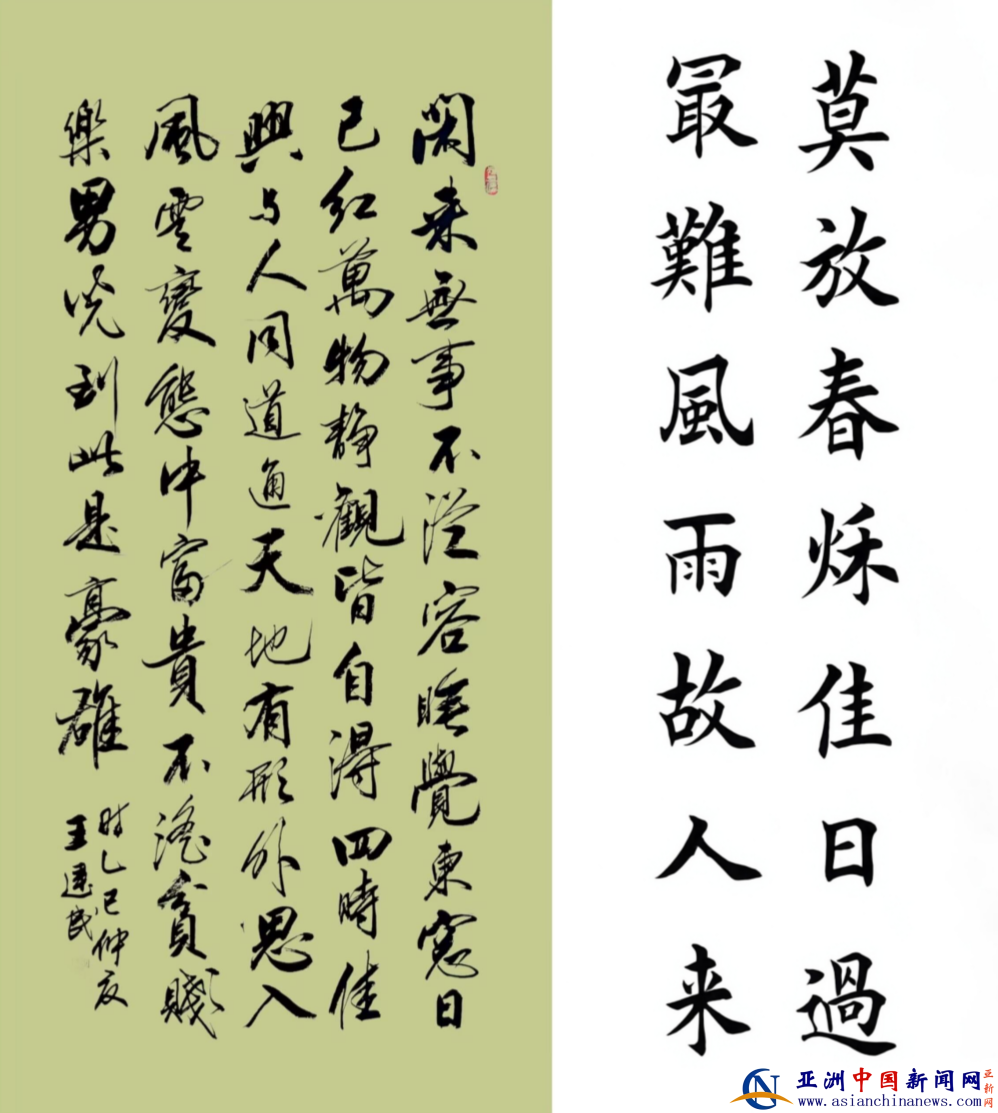 閑来無事不從容睡覺東窓日
已紅萬物静觀皆自得四時佳
興与人同道通天地有形外思入
風雲變態中富貴不淫貧賤
樂男児到此是豪雄
时乙巳仲夏
王建民
莫放春秌佳日過
最難風雨故人来
亚洲中国新闻网
www.asianchinanews.com
亚新网